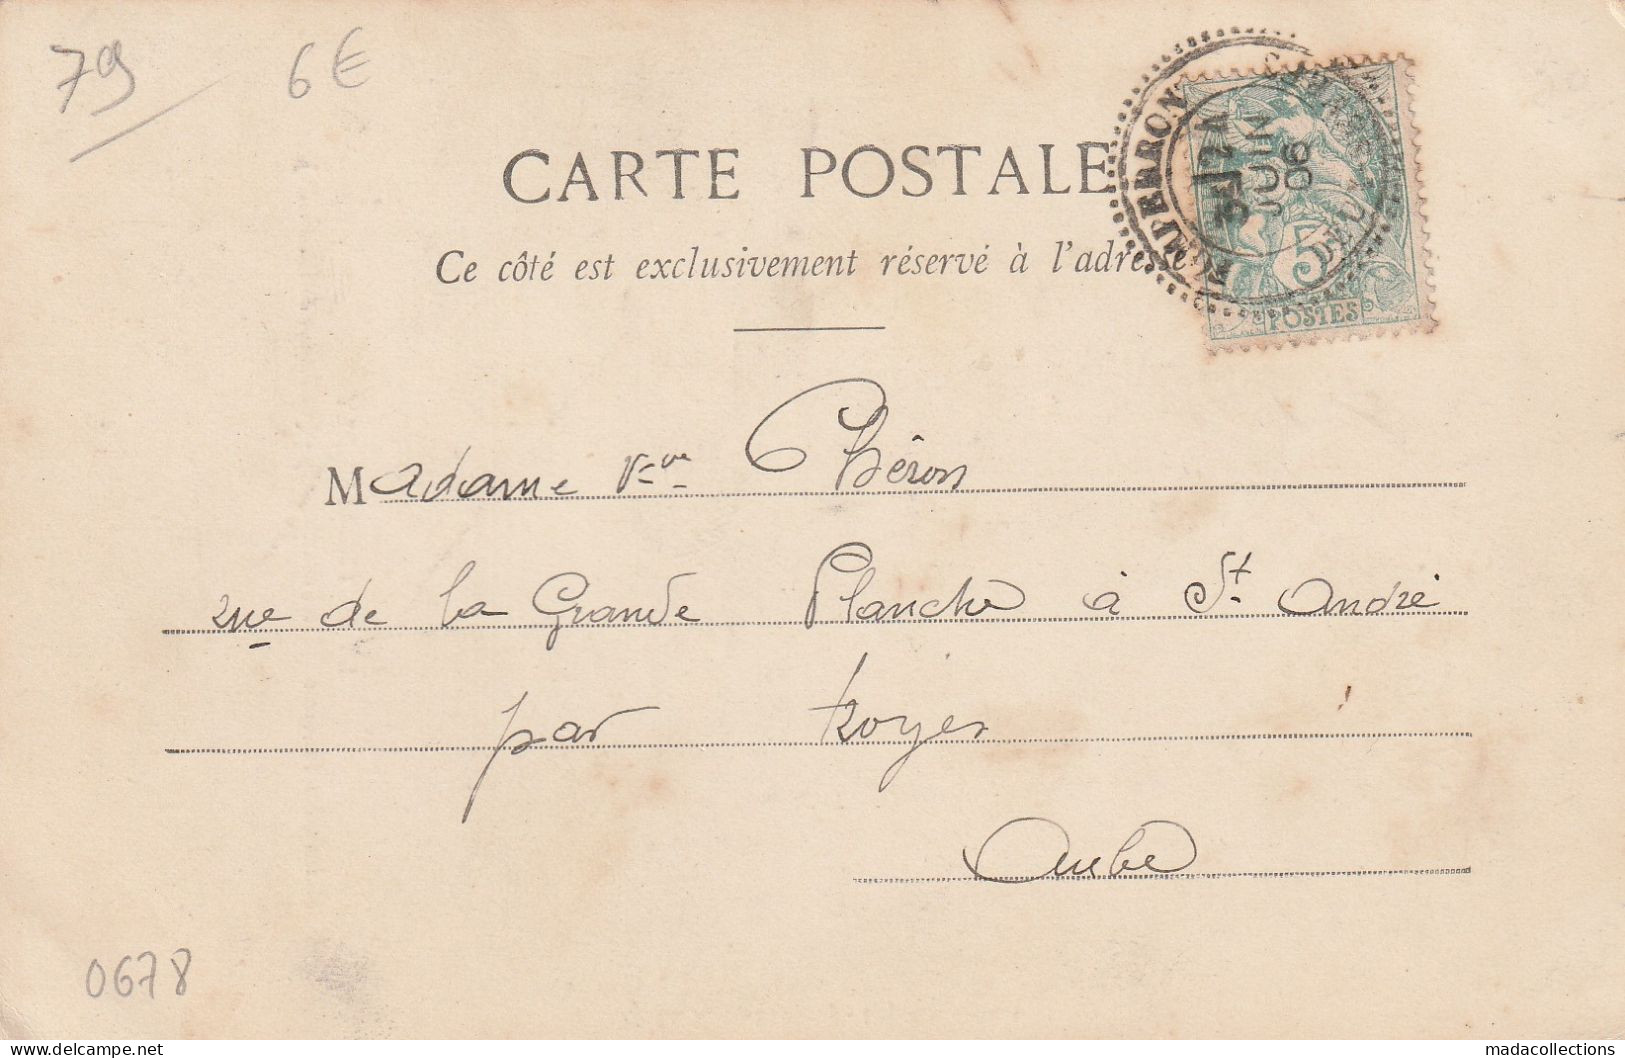 79
6€
CARTE POSTALE
Ce côté est exclusivement réservé à l'adresse
POMPERRON
3E
12
JUIN
06
5
POSTES
Madame Vve Théron
rue de la Grande Planche à St. André
par troyes
Aube
0678
delcampe.net
madacollections